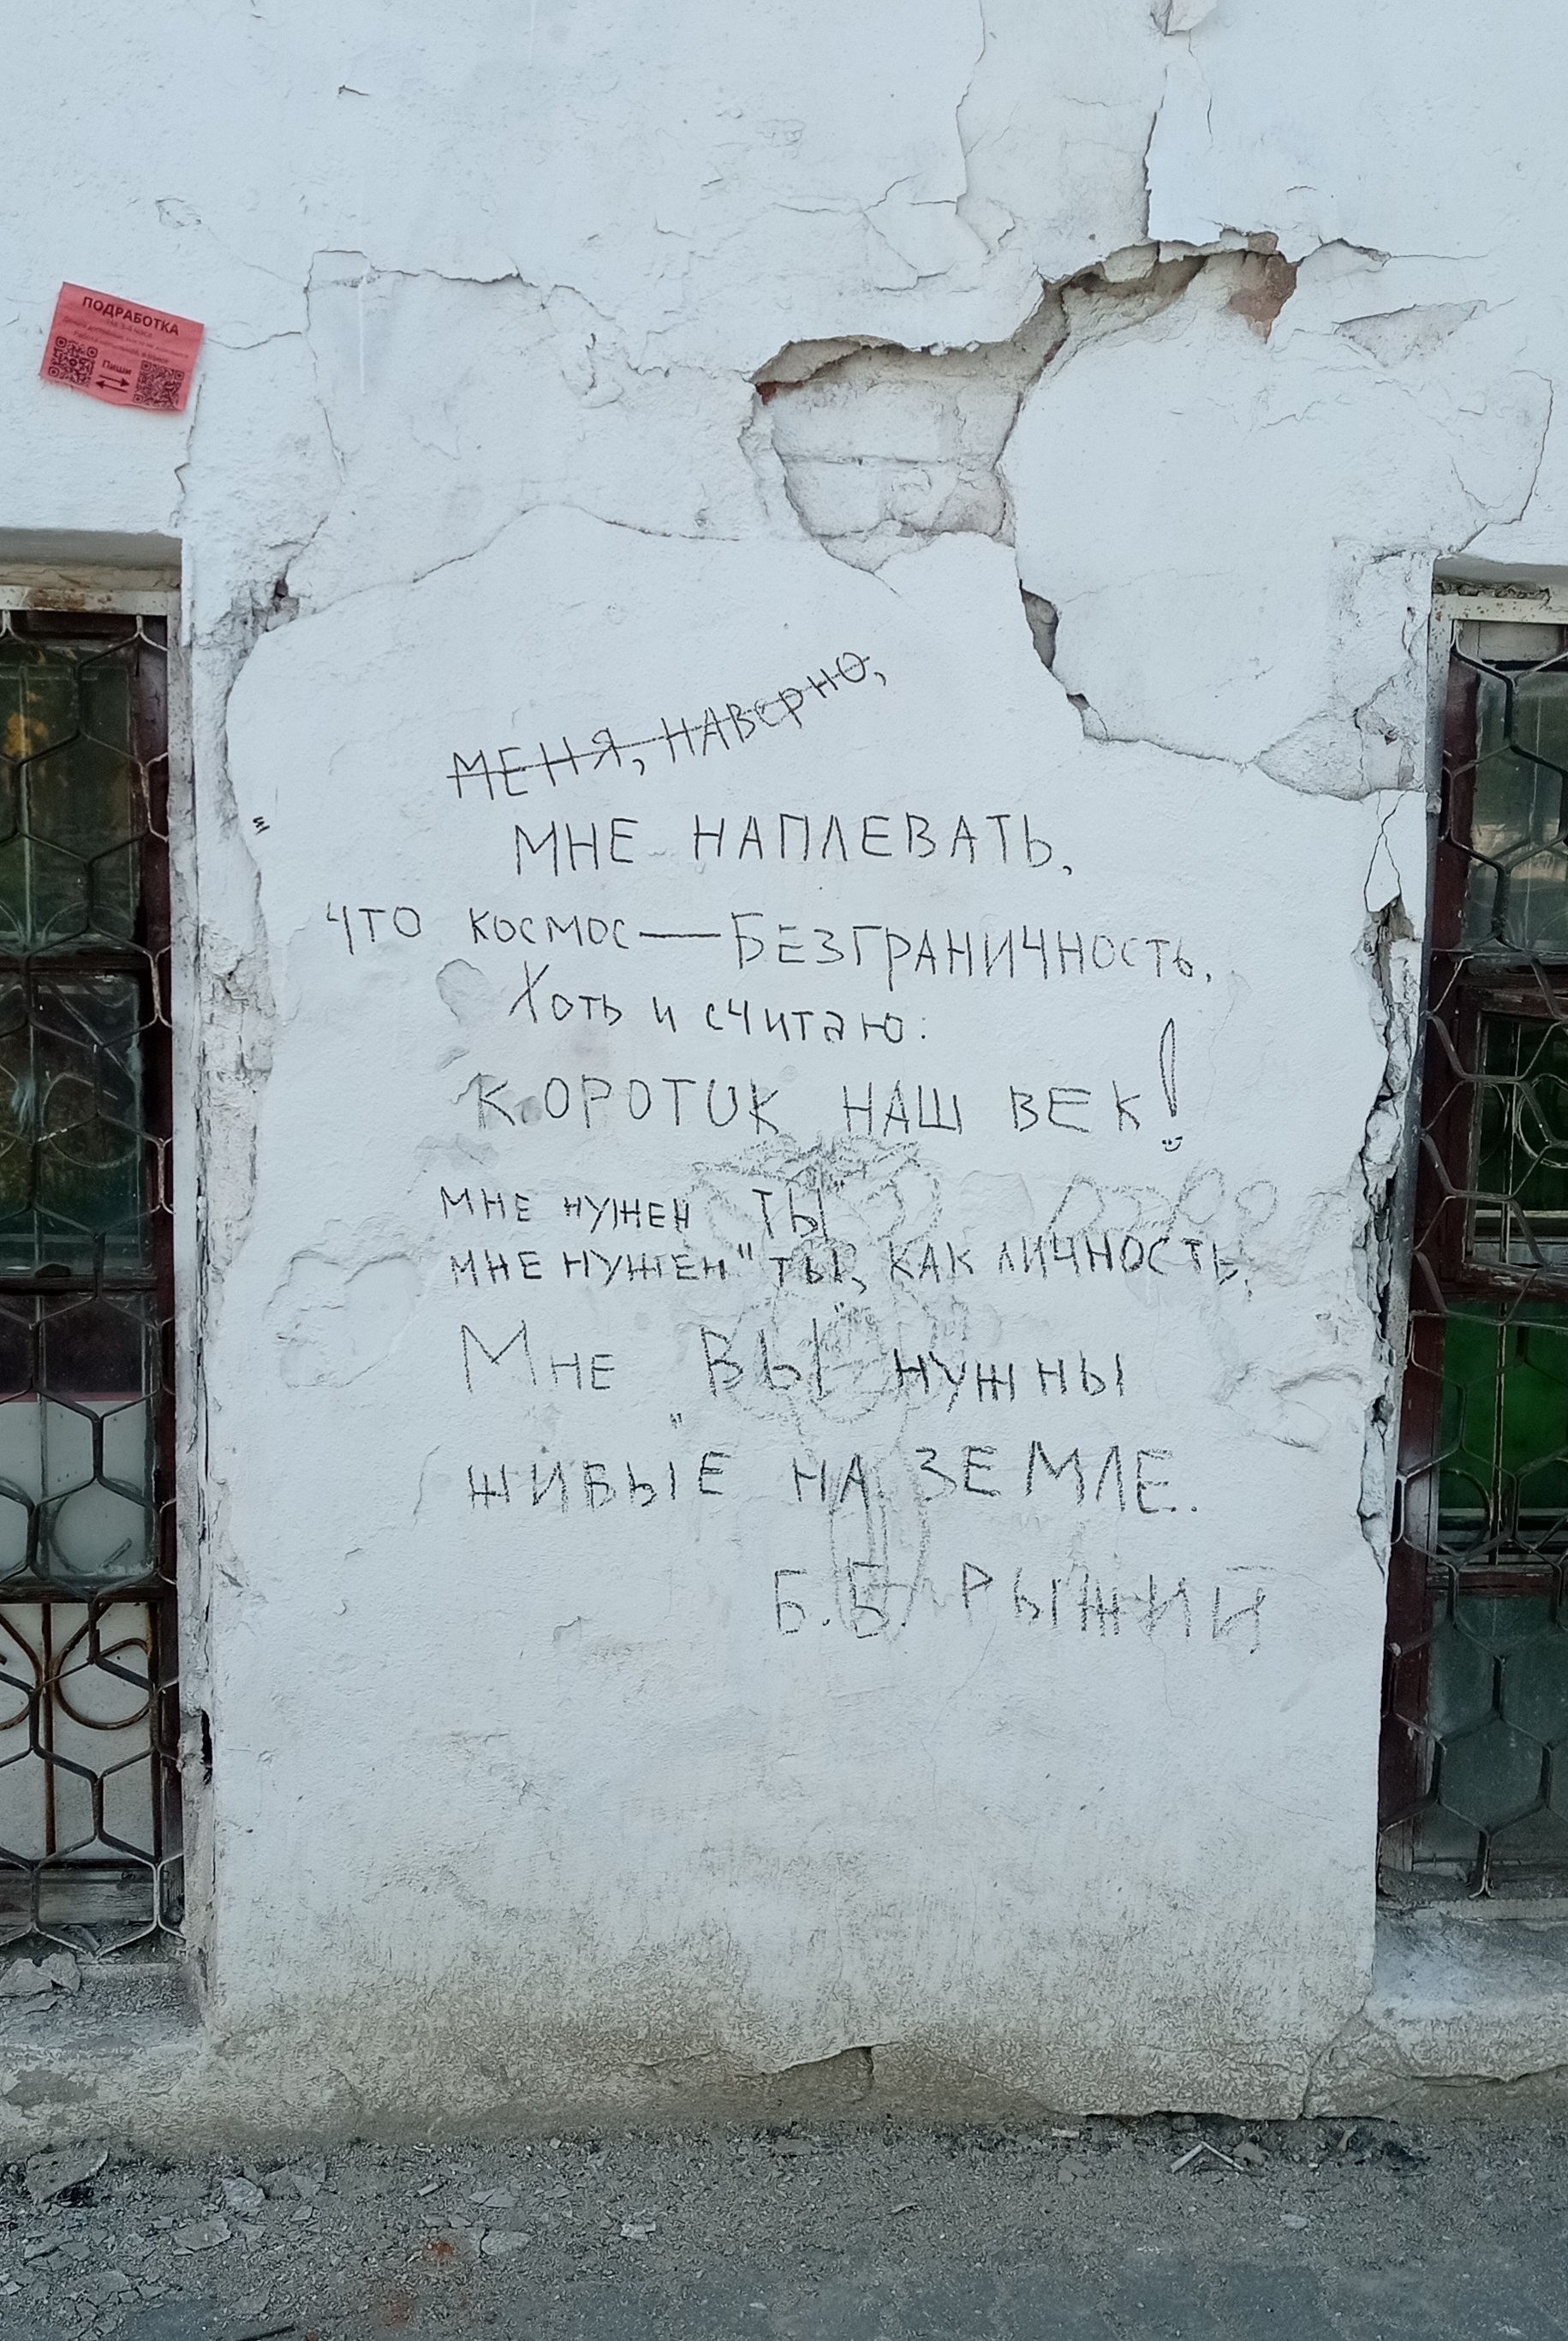 ПОДРАБОТКА
Пиши
МЕНЯ, НАВЕРНО,
МНЕ НАПЛЕВАТЬ,
ЧТО КОСМОС — БЕЗГРАНИЧНОСТЬ,
Хоть и считаю:
КОРОТОК НАШ ВЕК!
МНЕ НУЖЕН "ТЫ"
МНЕ НУЖЕН "ТЫ", КАК ЛИЧНОСТЬ,
Мне "ВЫ" НУЖНЫ
ЖИВЫЕ НА ЗЕМЛЕ.
Б.Б. РЫЖИЙ